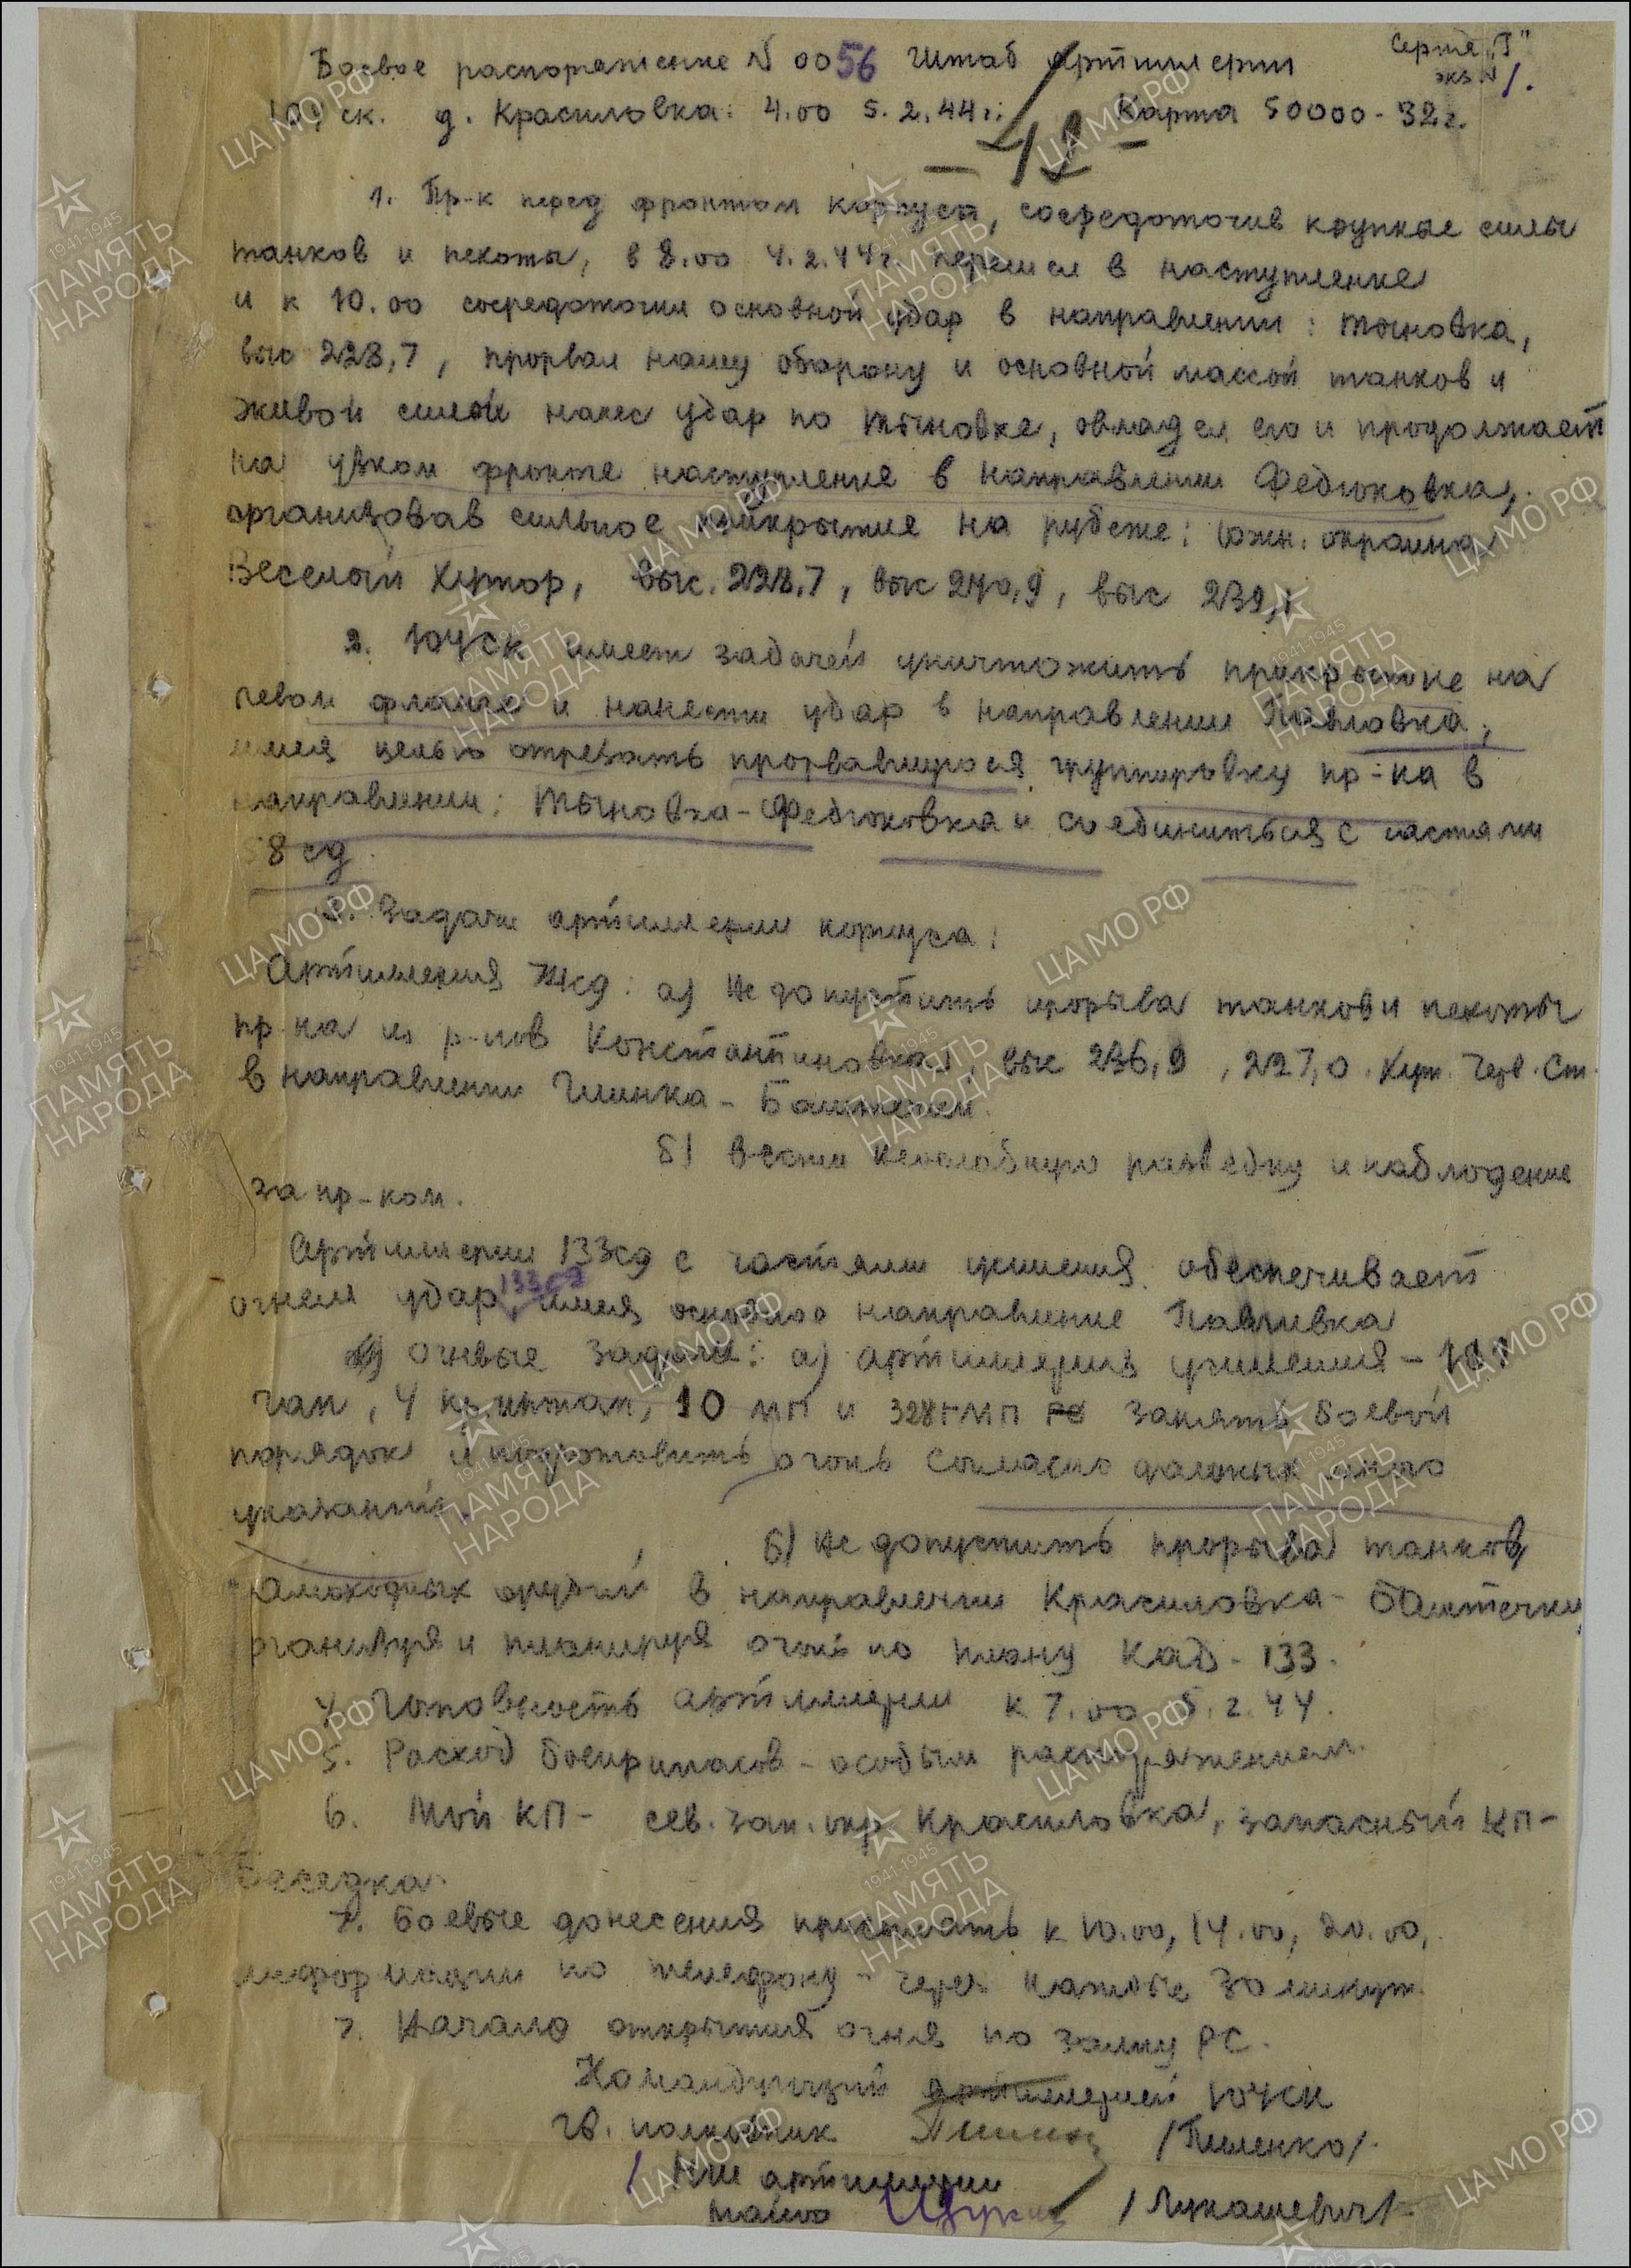 Серия "Г"
экз N 1.
Боевое распоряжение N 0056 Штаб Артиллерии
104 ск. д. Красиловка. 4.00 5.2.44г. Карта 50000 - 32г.
- 42 -
1. Пр-к перед фронтом корпуса, сосредоточив крупные силы
танков и пехоты, в 8.00 4.2.44г. перешел в наступление
и к 10.00 сосредоточил основной удар в направлении: Тыновка,
выс 228,7, прорвал нашу оборону и основной массой танков и
живой силой нанес удар по Тыновке, овладел ею и продолжает
на узком фронте наступление в направлении Федюковка,
организовав сильное прикрытие на рубеже: южн. окраина
Веселый Хутор, выс. 228,7, выс 240,9, выс 239,1
2. 104 ск имеет задачей уничтожить прикрытие на
левом фланге и нанести удар в направлении Павловка,
имея целью отрезать прорвавшуюся группировку пр-ка в
направлении: Тыновка - Федюковка и соединиться с частями
58 сд.
3. Задачи артиллерии корпуса:
Артиллерия сд: а) Не допустить прорыва танков и пехоты
пр-ка из р-нов Константиновка, выс 236,9, 227,0. Хут. Черв. Ст.
в направлении Глинка - Баштечки.
б) Вести неослабную разведку и наблюдение
за пр-ком.
Артиллерия 133сд с частями усиления обеспечивает
огнем удар 133сд имея основное направление Павловка
Огневые задачи: а) артиллерия усиления -
гап, 4 иптап, 10 мп и 328 гмп занять боевой
порядок и подготовить огонь согласно данных мною
указаний.
б) Не допустить прорыва танков,
самоходных орудий в направлении Красиловка - Баштечки,
организуя и планируя огонь по плану КАД - 133.
4. Готовность артиллерии к 7.00 5.2.44.
5. Расход боеприпасов - особым распоряжением.
6. Мой КП - сев. зап. окр. Красиловка, запасный КП -
Беседка.
7. Боевые донесения присылать к 10.00, 14.00, 20.00,
информации по телефону - через каждые 30 минут.
7. Начало открытия огня по залпу РС.
Командующий артиллерией 104 ск
Гв. полковник /Пиленко/.
НШ артиллерии
майор /Лукашевич/.
ЦАМО РФ
1941-1945
ПАМЯТЬ
НАРОДА